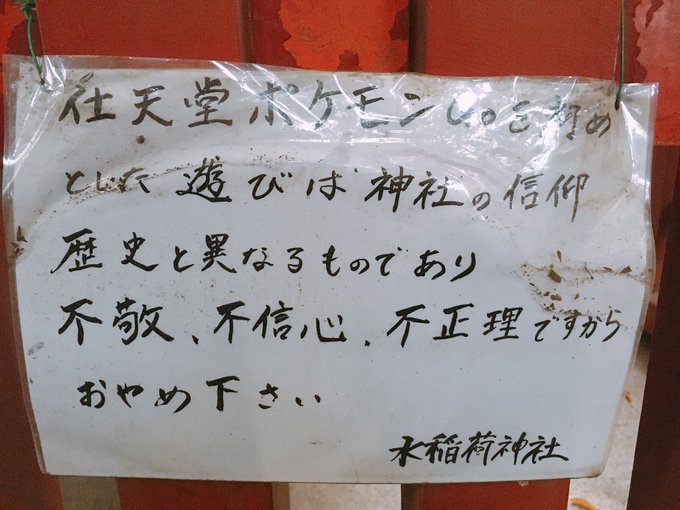 任天堂ポケモンGoを初め
とした遊びは神社の信仰
歴史と異なるものであり
不敬、不信心、不正理ですから
おやめ下さい
水稲荷神社